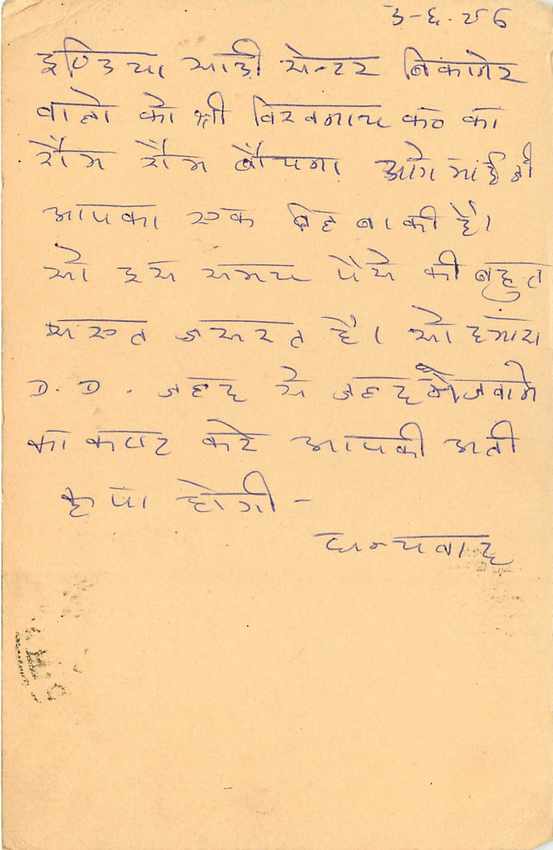 ३-६-८६
इण्डिया साडी सेन्टर बिकानेर
वालो को श्री विश्वनाथ का
राँम राँम बाँचना आगे भाई जी
आपका एक बिल बाकी है।
सो इस समय पैसे की बहुत
सख्त जरूरत है। सो हमारा
D. D. जल्द से जल्द भेजवाने
का कष्ट करे आपकी अती
कृपा होगी -
धन्यवाद